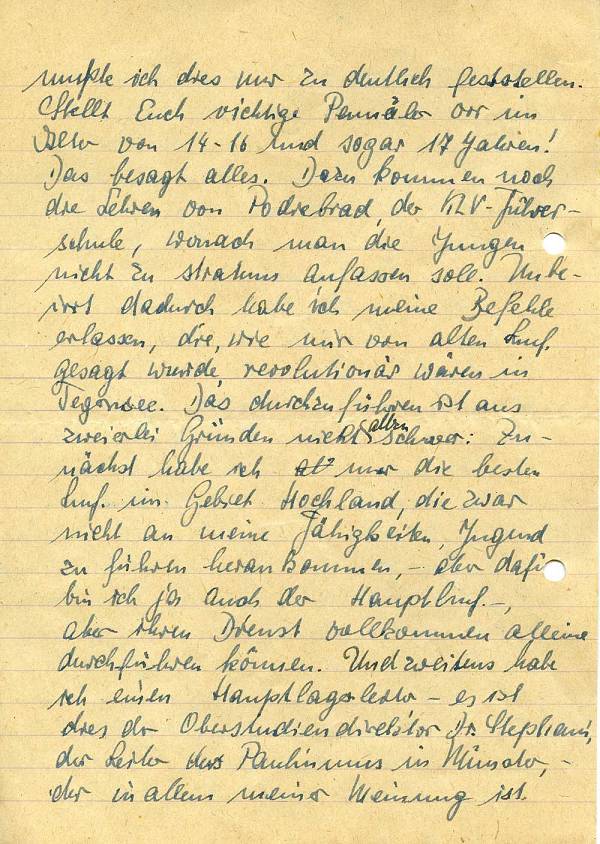 mußte ich dies nur zu deutlich feststellen.
Stellt Euch richtige Pennäler vor im
Alter von 14-16 und sogar 17 Jahren!
Das besagt alles. Dazu kommen noch
die Lehren von Podiebrad, der KLV-Führer-
schule, wonach man die Jungen
nicht zu stramm anfassen soll. Unbe-
irrt dadurch habe ich meine Befehle
erlassen, die, wie mir von alten Lmf.
gesagt wurde, revolutionär wären in
Tegernsee. Das durchzuführen ist aus
zweierlei Gründen nicht allzu schwer: Zu-
nächst habe ich nur die besten
Lmf. im Gebiet Hochland, die zwar
nicht an meine Fähigkeiten, Jugend
zu führen herankommen, - aber dafür
bin ich ja auch der Hauptlmf. -,
aber ihren Dienst vollkommen alleine
durchführen können. Und zweitens habe
ich einen Hauptlagerleiter - es ist
dies der Oberstudiendirektor Dr. Stephani,
der Leiter des Paulinums in Münster, -
der in allem meiner Meinung ist.